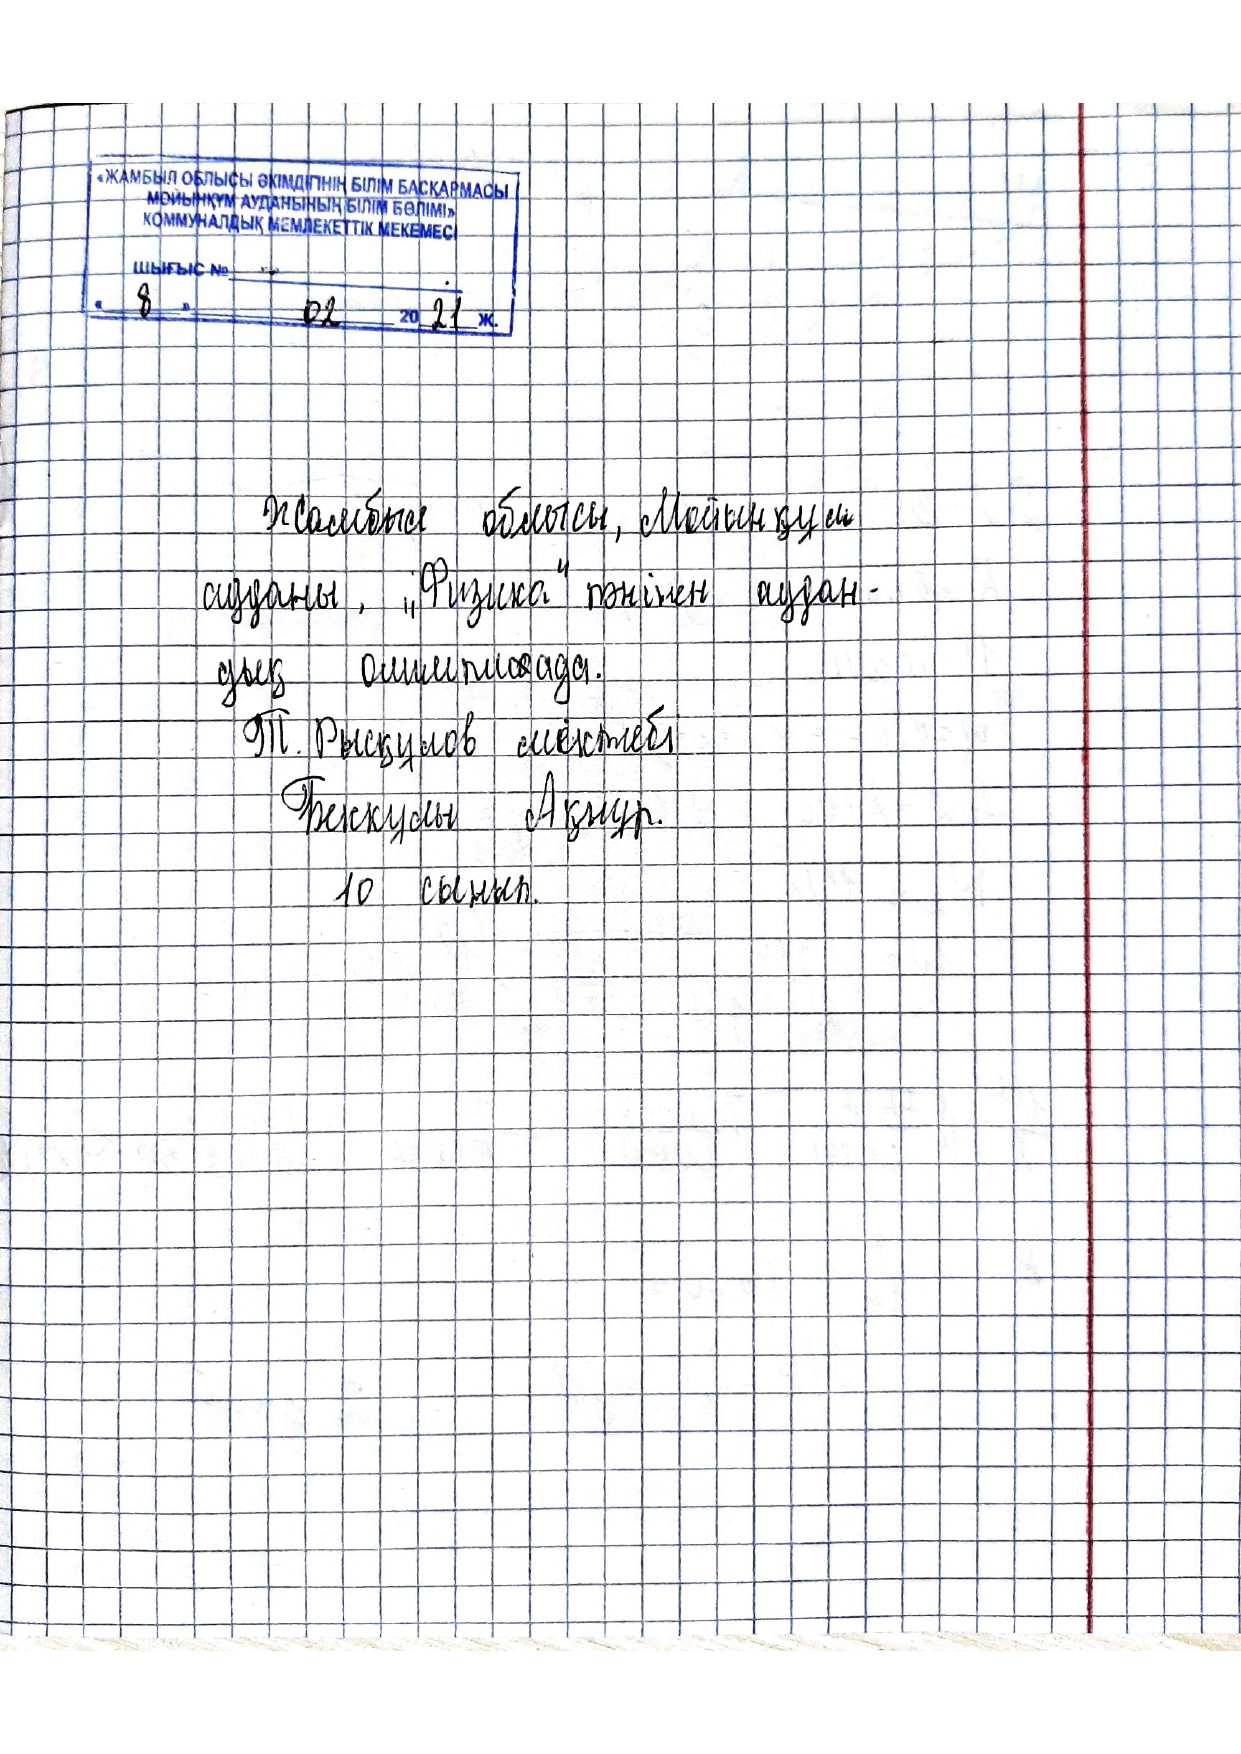 «ЖАМБЫЛ ОБЛЫСЫ ӘКІМДІГІНІҢ БІЛІМ БАСҚАРМАСЫ
МОЙЫНҚҰМ АУДАНЫНЫҢ БІЛІМ БӨЛІМІ»
КОММУНАЛДЫҚ МЕМЛЕКЕТТІК МЕКЕМЕСІ
ШЫҒЫС №
« 8 » 02 20 21 Ж.
Жамбыл облысы, Мойынқұм
ауданы, „Физика“ пәнінен аудан-
дық олимпиада.
Т. Рысқұлов мектебі
Беккулы Ақнұр.
10 сынып.